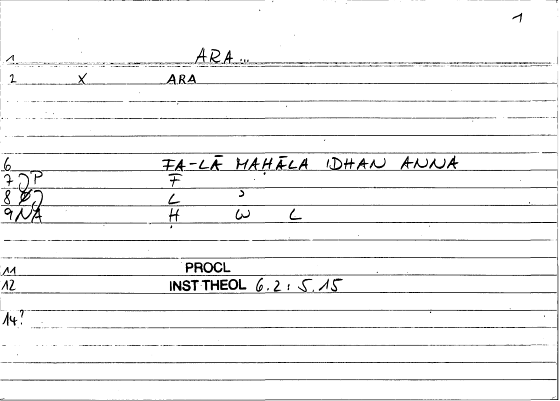 1
1 ARA...
2 X ARA
6 FA-LĀ MAḤĀLA IDHAN ANNA
7 JP F
8 L ʾ
9 NA Ḥ W L
11 PROCL
12 INST THEOL 6.2 : 5.15
14?